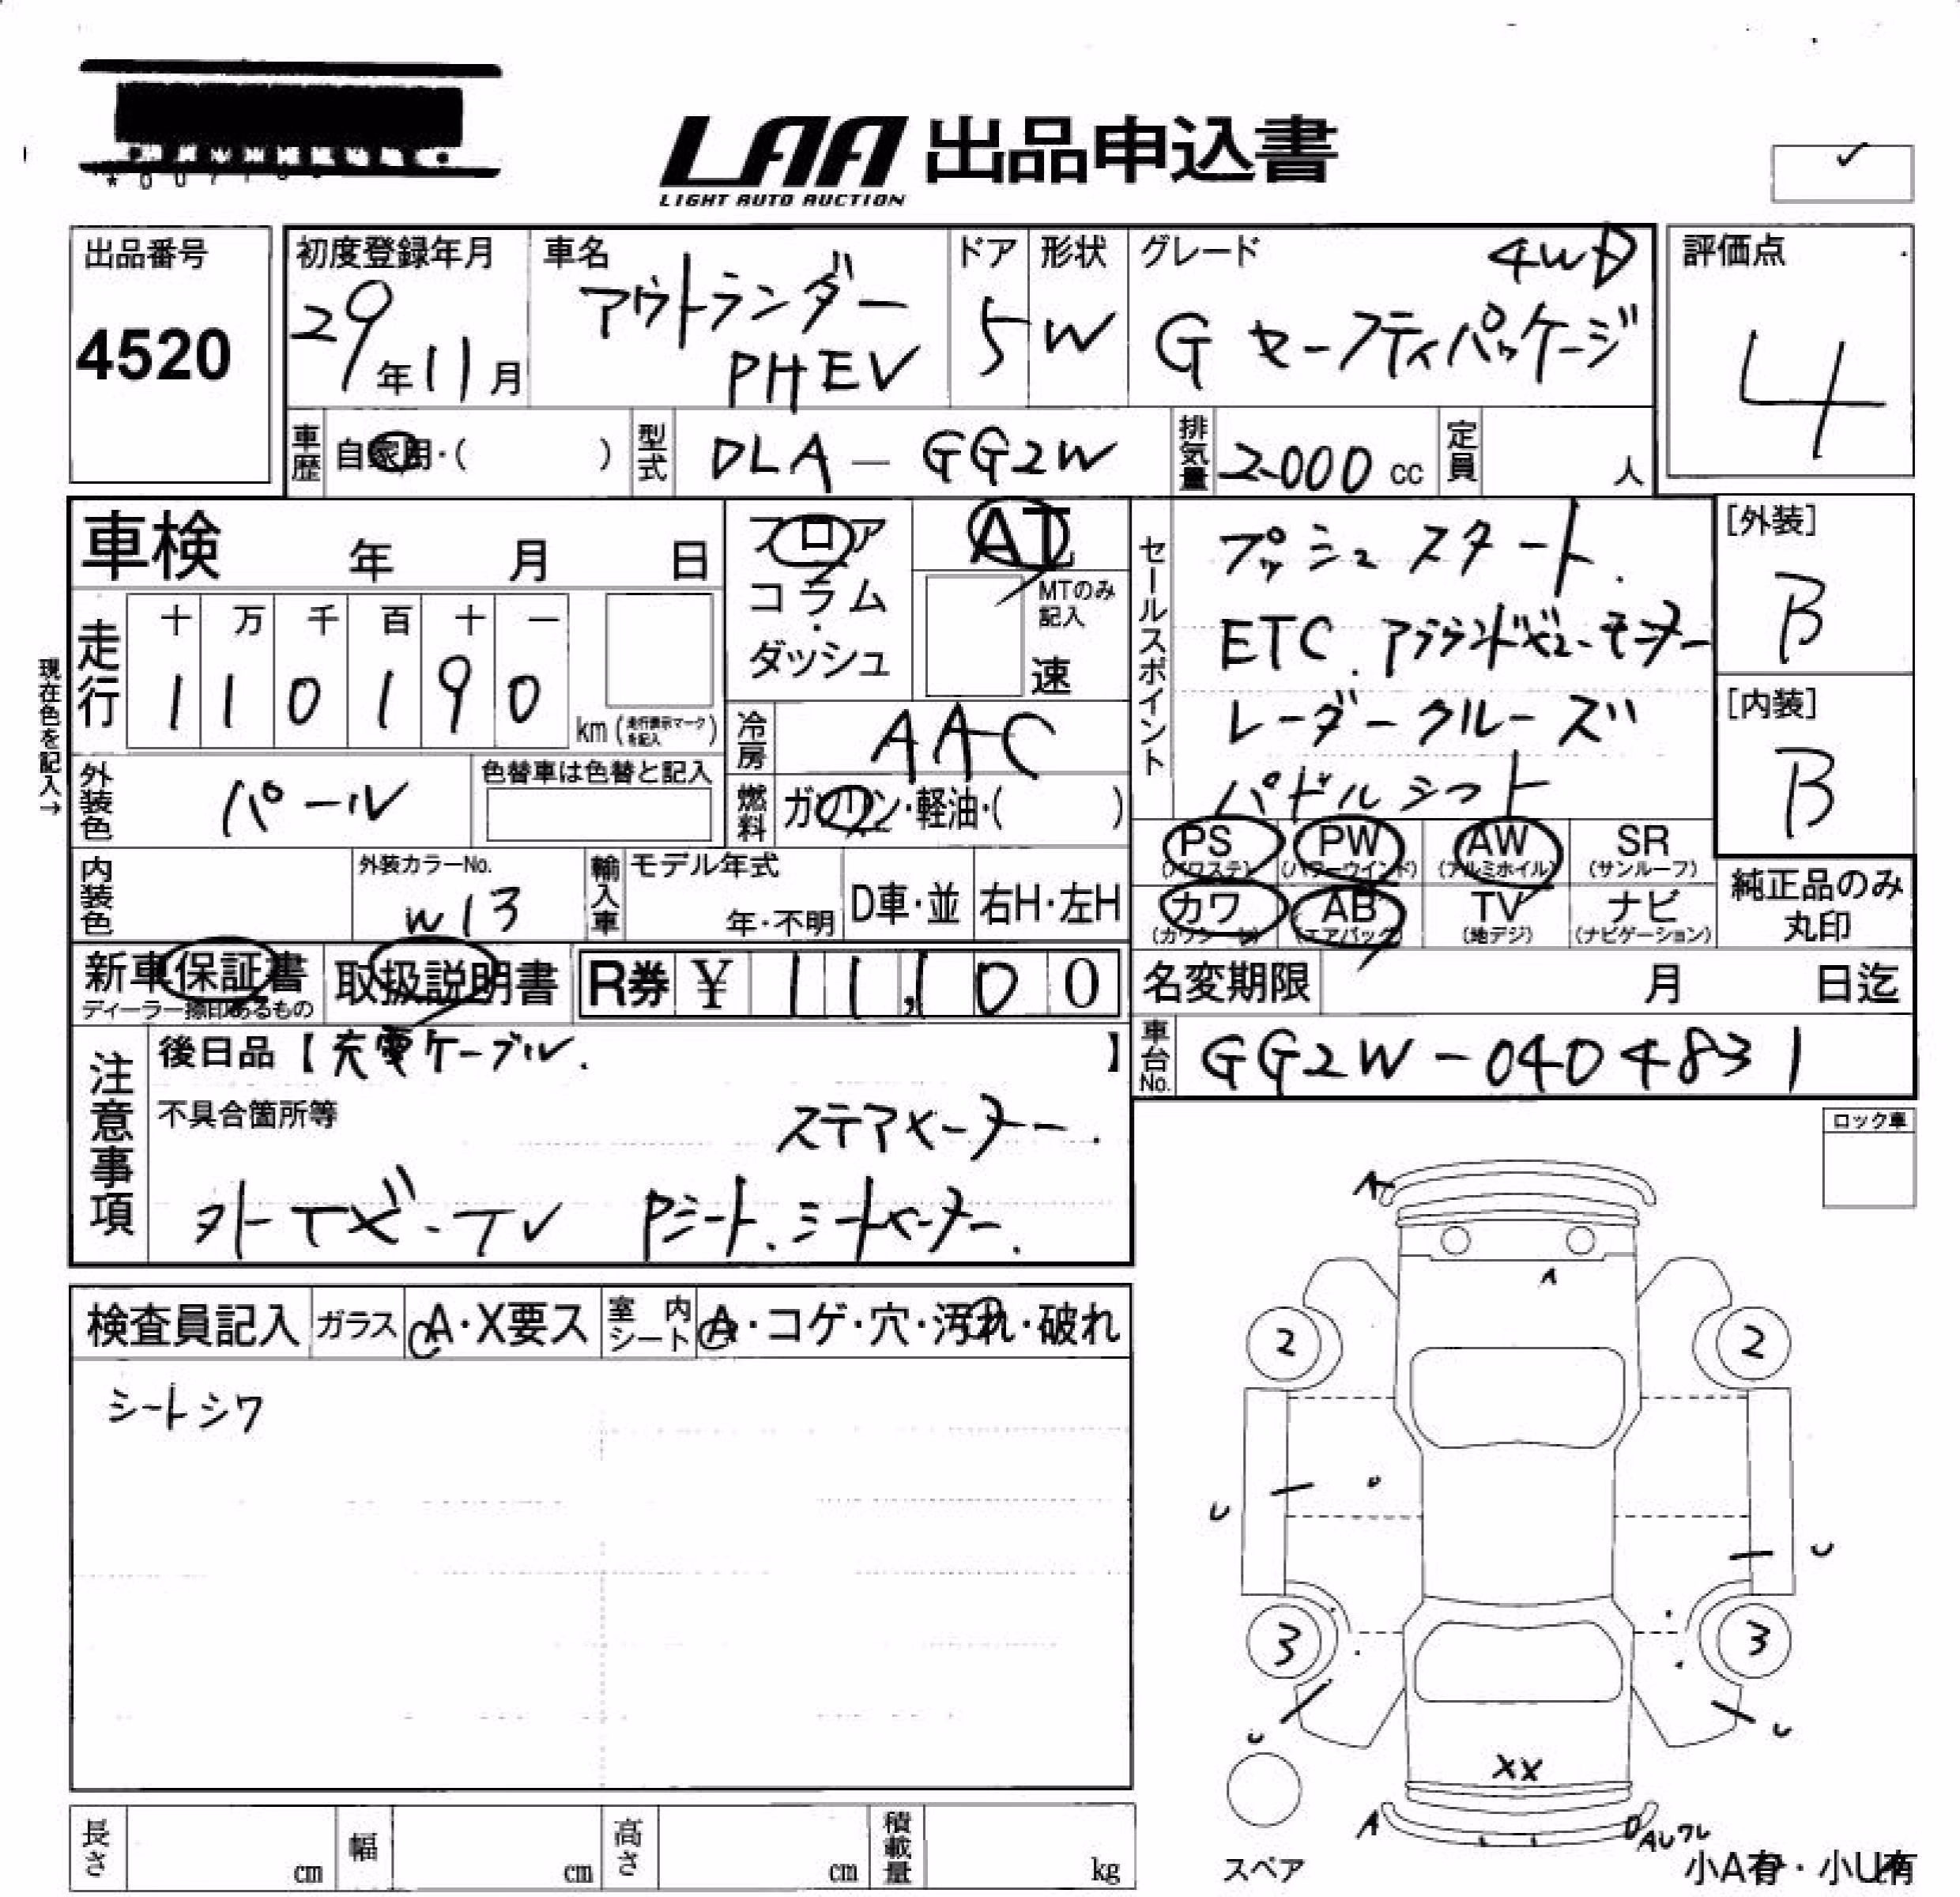 LAA 出品申込書
LIGHT AUTO AUCTION
出品番号
4520
初度登録年月
29年11月
車名
アウトランダー
PHEV
ドア
5
形状
W
グレード
4WD
G セーフティパッケージ
評価点
4
車歴 自家用・( )
型式 DLA-GG2W
排気量 2000 cc
定員 人
車検 年 月 日
走行
十 万 千 百 十 一
1 1 0 1 9 0
km (走行表示マークを記入)
現在色を記入→
外装色 パール
色替車は色替と記入
内装色
外装カラーNo.
W13
フロア
コラム
・
ダッシュ
AT
MTのみ
記入
速
冷房 AAC
燃料 ガソリン・軽油・( )
輸入車
モデル年式
年・不明
D車・並
右H・左H
セールスポイント
プッシュスタート.
ETC.アラウンドビューモニター
レーダークルーズ
パドルシフト
[外装]
B
[内装]
B
PS (パワステ)
PW (パワーウインド)
AW (アルミホイル)
SR (サンルーフ)
カワ (カワシート)
AB (エアバッグ)
TV (地デジ)
ナビ (ナビゲーション)
純正品のみ
丸印
新車保証書
ディーラー捺印あるもの
取扱説明書
R券 ¥ 11,100
名変期限 月 日迄
車台No. GG2W-0404831
注意事項
後日品【充電ケーブル. 】
不具合箇所等
ステアヒーター.
Pシート.シートヒーター.
ロック車
検査員記入
ガラス A・X要ス
室内シート A・コゲ・穴・汚れ・破れ
シートシワ
A
A
2
2
U
U
3
3
U
U
XX
A
スペア
小A有・小U有
長さ cm
幅 cm
高さ cm
積載量 kg